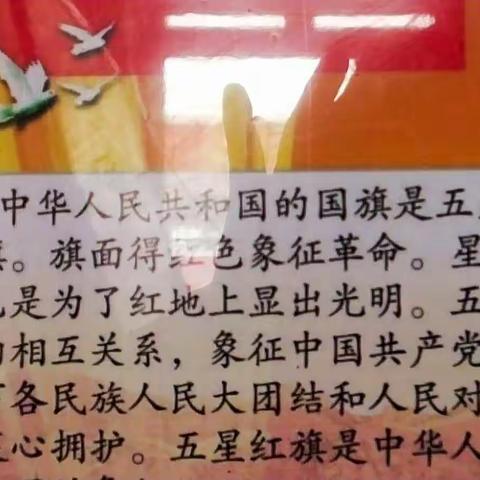 中华人民共和国的国旗是五
。旗面得红色象征革命。星
是为了红地上显出光明。五
相互关系，象征中国共产党
各民族人民大团结和人民对
心拥护。五星红旗是中华人